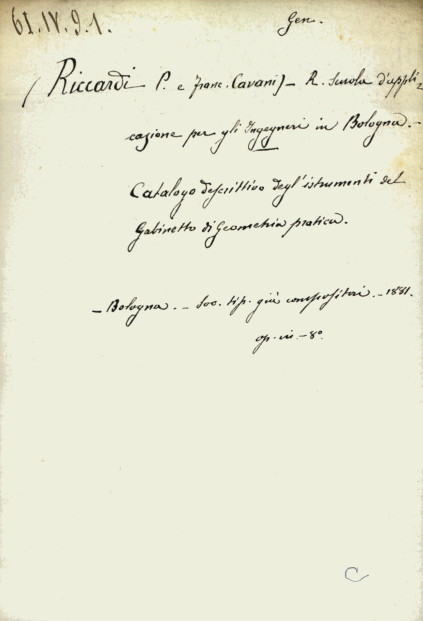 61.IV.9.1.
Gen.
(Riccardi P. e Franc. Cavani) – R. Scuola d'appli-
cazione per gli Ingegneri in Bologna. –
Catalogo descrittivo degl'istrumenti del
Gabinetto di Geometria pratica.
– Bologna. – Soc. tip. già compositori. – 1881.
op. in – 8º.
C